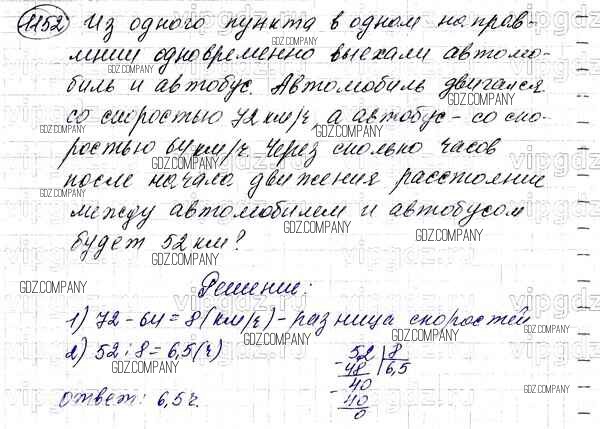 1152 Из одного пункта в одном направ-
лении одновременно выехали автомо-
биль и автобус. Автомобиль двигался
со скоростью 72 км/ч, а автобус - со ско-
ростью 64 км/ч. Через сколько часов
после начала движения расстояние
между автомобилем и автобусом
будет 52 км?
Решение:
1) 72 - 64 = 8 (км/ч) - разница скоростей
2) 52 : 8 = 6,5 (ч)
52 | 8
- 48 | 6,5
40
- 40
0
ответ: 6,5 ч.